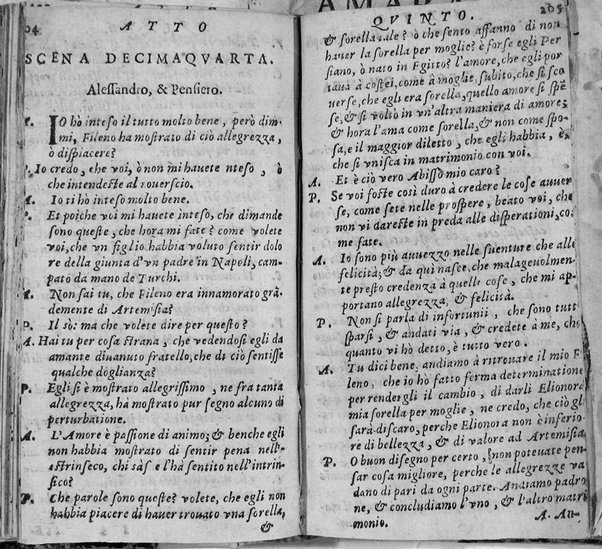 04 ATTO
SCENA DECIMAQVARTA.
Alessandro, & Pensiero.
IO hò inteso il tutto molto bene, però dim-
mi, Fileno ha mostrato di ciò allegrezza,
ò dispiacere?
P. Io credo, che voi, ò non mi hauete nteso, ò
che intendeste al rouerscio.
A. Io ti hò inteso molto bene.
P. Et poiche voi mi hauete inteso, che dimande
sono queste, che hora mi fate? come volete
voi, che vn figlio habbia voluto sentir dolo
re della giunta d'vn padre in Napoli, cam-
pato da mano de Turchi.
A. Non sai tu, che Fileno era innamorato grã-
demente di Artemisia?
P. Il sò: ma che volete dire per questo?
A. Hai tu per cosa strana, che vedendosi egli da
amante diuenuto fratello, che di ciò sentisse
qualche doglianza?
P. Egli si è mostrato allegrissimo, ne fra tanta
allegrezza, hà mostrato pur segno alcuno di
perturbatione.
A. L'Amore è passione di animo; & benche egli
non habbia mostrato di sentir pena nell'
estrinseco, chi sàs e l'hà sentito nell'intrin-
sico?
P. Che parole sono queste? volete, che egli non
habbia piacere di hauer trouato vna sorella,
&
QVINTO. 205
& sorella tale? ò che sento affanno di non
hauer la sorella per moglie? è forse egli Per
siano, ò nato in Egitto? l'amore, che egli por
taua à costei, come à moglie, subito, che si sco
uerse, che egli era sorella, quello amore si spẽ
se, & si voltò in vn'altra maniera di amore;
& hora l'ama come sorella, & non come spo-
sa, e il maggior diletto, che egli habbia, è,
che si vnisca in matrimonio con voi.
A. Et è ciò vero Abisso mio caro?
P. Se voi foste così duro à credere le cose auuer
se, come sete nelle prospere, beato voi, che
non vi dareste in preda alle disperationi, co
me fate.
A. Io sono più auuezzo nelle suenture che alle
felicità; & da qui nasce, che malageuolmen-
te presto credenza à quelle cose, che mi ap-
portano allegrezza, & felicità.
P. Non si parla di infortunii, che sono tutt
sparsi, & andati via, & credete à me, che
quanto vi hò detto, è tutto vero.
A. Tu dici bene, andiamo à ritrouare il mio F
leno, che io hò fatto ferma determinatione
per rendegli il cambio, di darli Elionora
mia sorella per moglie, ne credo, che ciò gli
sarà discaro, perche Elionora non è inferio
re di bellezza, & di valore ad Artemisia.
P. O buon disegno per certo, non poteuate pen-
sar cosa migliore, perche le allegrezze va
dano di pari da ogni parte. Andiamo padro
ne, & concludiamo l'vno, & l'altro matri
monio. A. An-